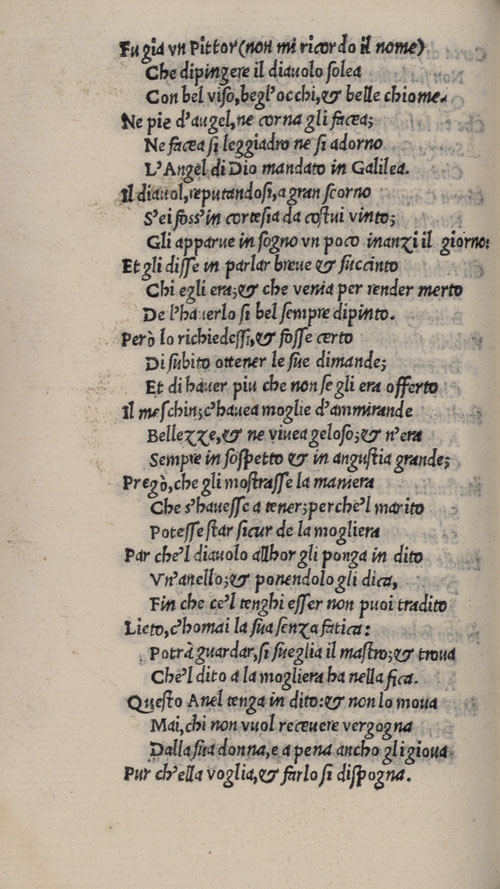 Fu gia vn Pittor (non mi ricordo il nome)
Che dipingere il diauolo solea
Con bel viso, begl'occhi, & belle chiome.
Ne pie d'augel, ne corna gli facea;
Ne facea si leggiadro ne si adorno
L'Angel di Dio mandato in Galilea.
Il diauol, reputandosi, a gran scorno
S'ei foss'in cortesia da costui vinto;
Gli apparue in sogno vn poco inanzi il giorno:
Et gli disse in parlar breue & succinto
Chi egli era; & che venia per render merto
De l'hauerlo si bel sempre dipinto.
Però lo richiedessi, & fosse certo
Di subito ottener le sue dimande;
Et di hauer piu che non se gli era offerto
Il meschin; c'hauea moglie d'ammirande
Bellezze, & ne viuea geloso; & n'era
Sempre in sospetto & in angustia grande;
Pregò, che gli mostrasse la maniera
Che s'hauesse a tener; perche'l marito
Potesse star sicur de la mogliera
Par che'l diauolo allhor gli ponga in dito
Vn'anello; & ponendolo gli dica,
Fin che ce'l tenghi esser non puoi tradito
Lieto, c'homai la sua senza fatica:
Potrà guardar, si sueglia il mastro; & troua
Che'l dito a la mogliera ha nella fica.
Questo Anel tenga in dito: & non lo moua
Mai, chi non vuol receuere vergogna
Dalla sua donna, e a pena ancho gli gioua
Pur ch'ella voglia, & farlo si dispogna.